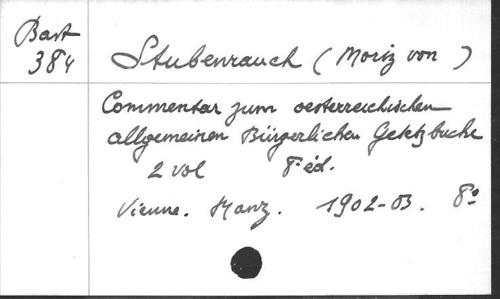 Bart
384
Stubenrauch (Moriz von )
Commentar zum oesterreichischen
allgemeinen Bürgerlichen Gesetzbuche
2 vol 8e éd.
Vienne. Manz. 1902-03. 8º